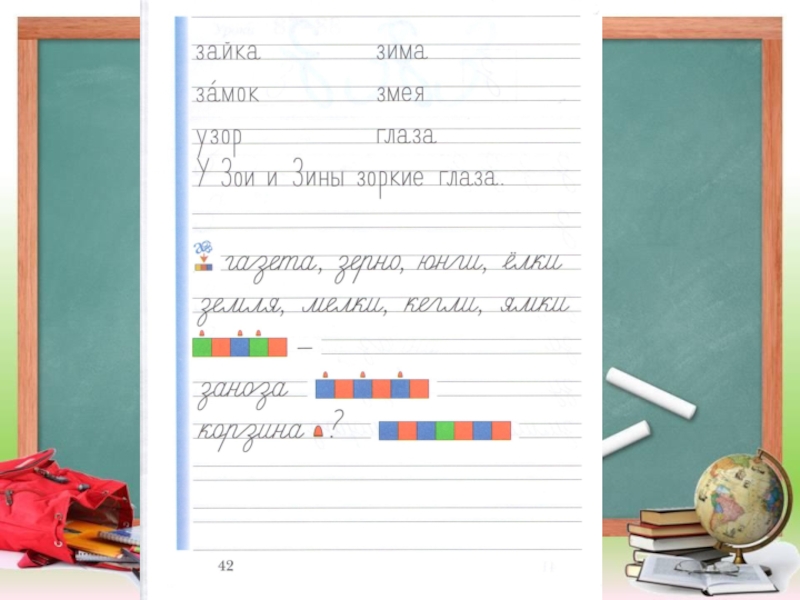 зайка зима
за́мок змея
узор глаза
У Зои и Зины зоркие глаза.
газета, зерно, юнги, ёлки
земля, мелки, кегли, ямки
–
заноза
корзина ?
42